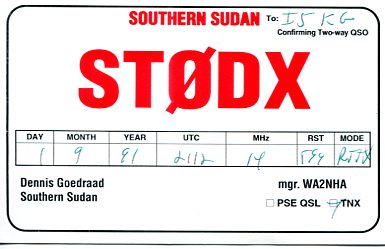 SOUTHERN SUDAN To: I5KG
Confirming Two-way QSO
STØDX
DAY MONTH YEAR UTC MHz RST MODE
1 9 91 2112 14 599 RTTY
Dennis Goedraad mgr. WA2NHA
Southern Sudan
PSE QSL TNX